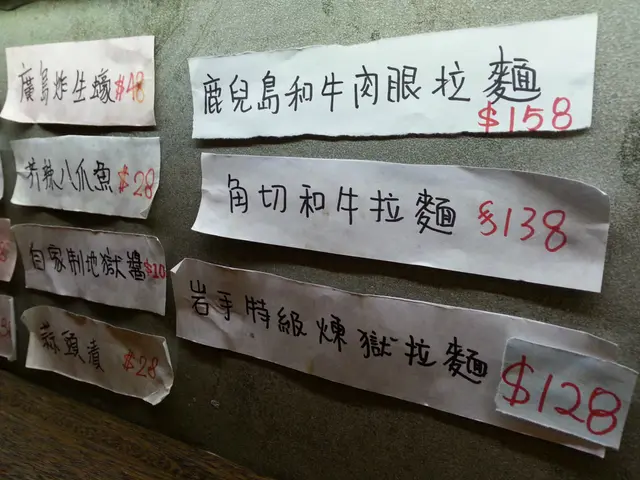 廣島炸生蠔$48
芥辣八爪魚$28
自家制地獄醬$10
蒜頭漬$28
鹿兒島和牛肉眼拉麵
$158
角切和牛拉麵 $138
岩手特級煉獄拉麵 $128